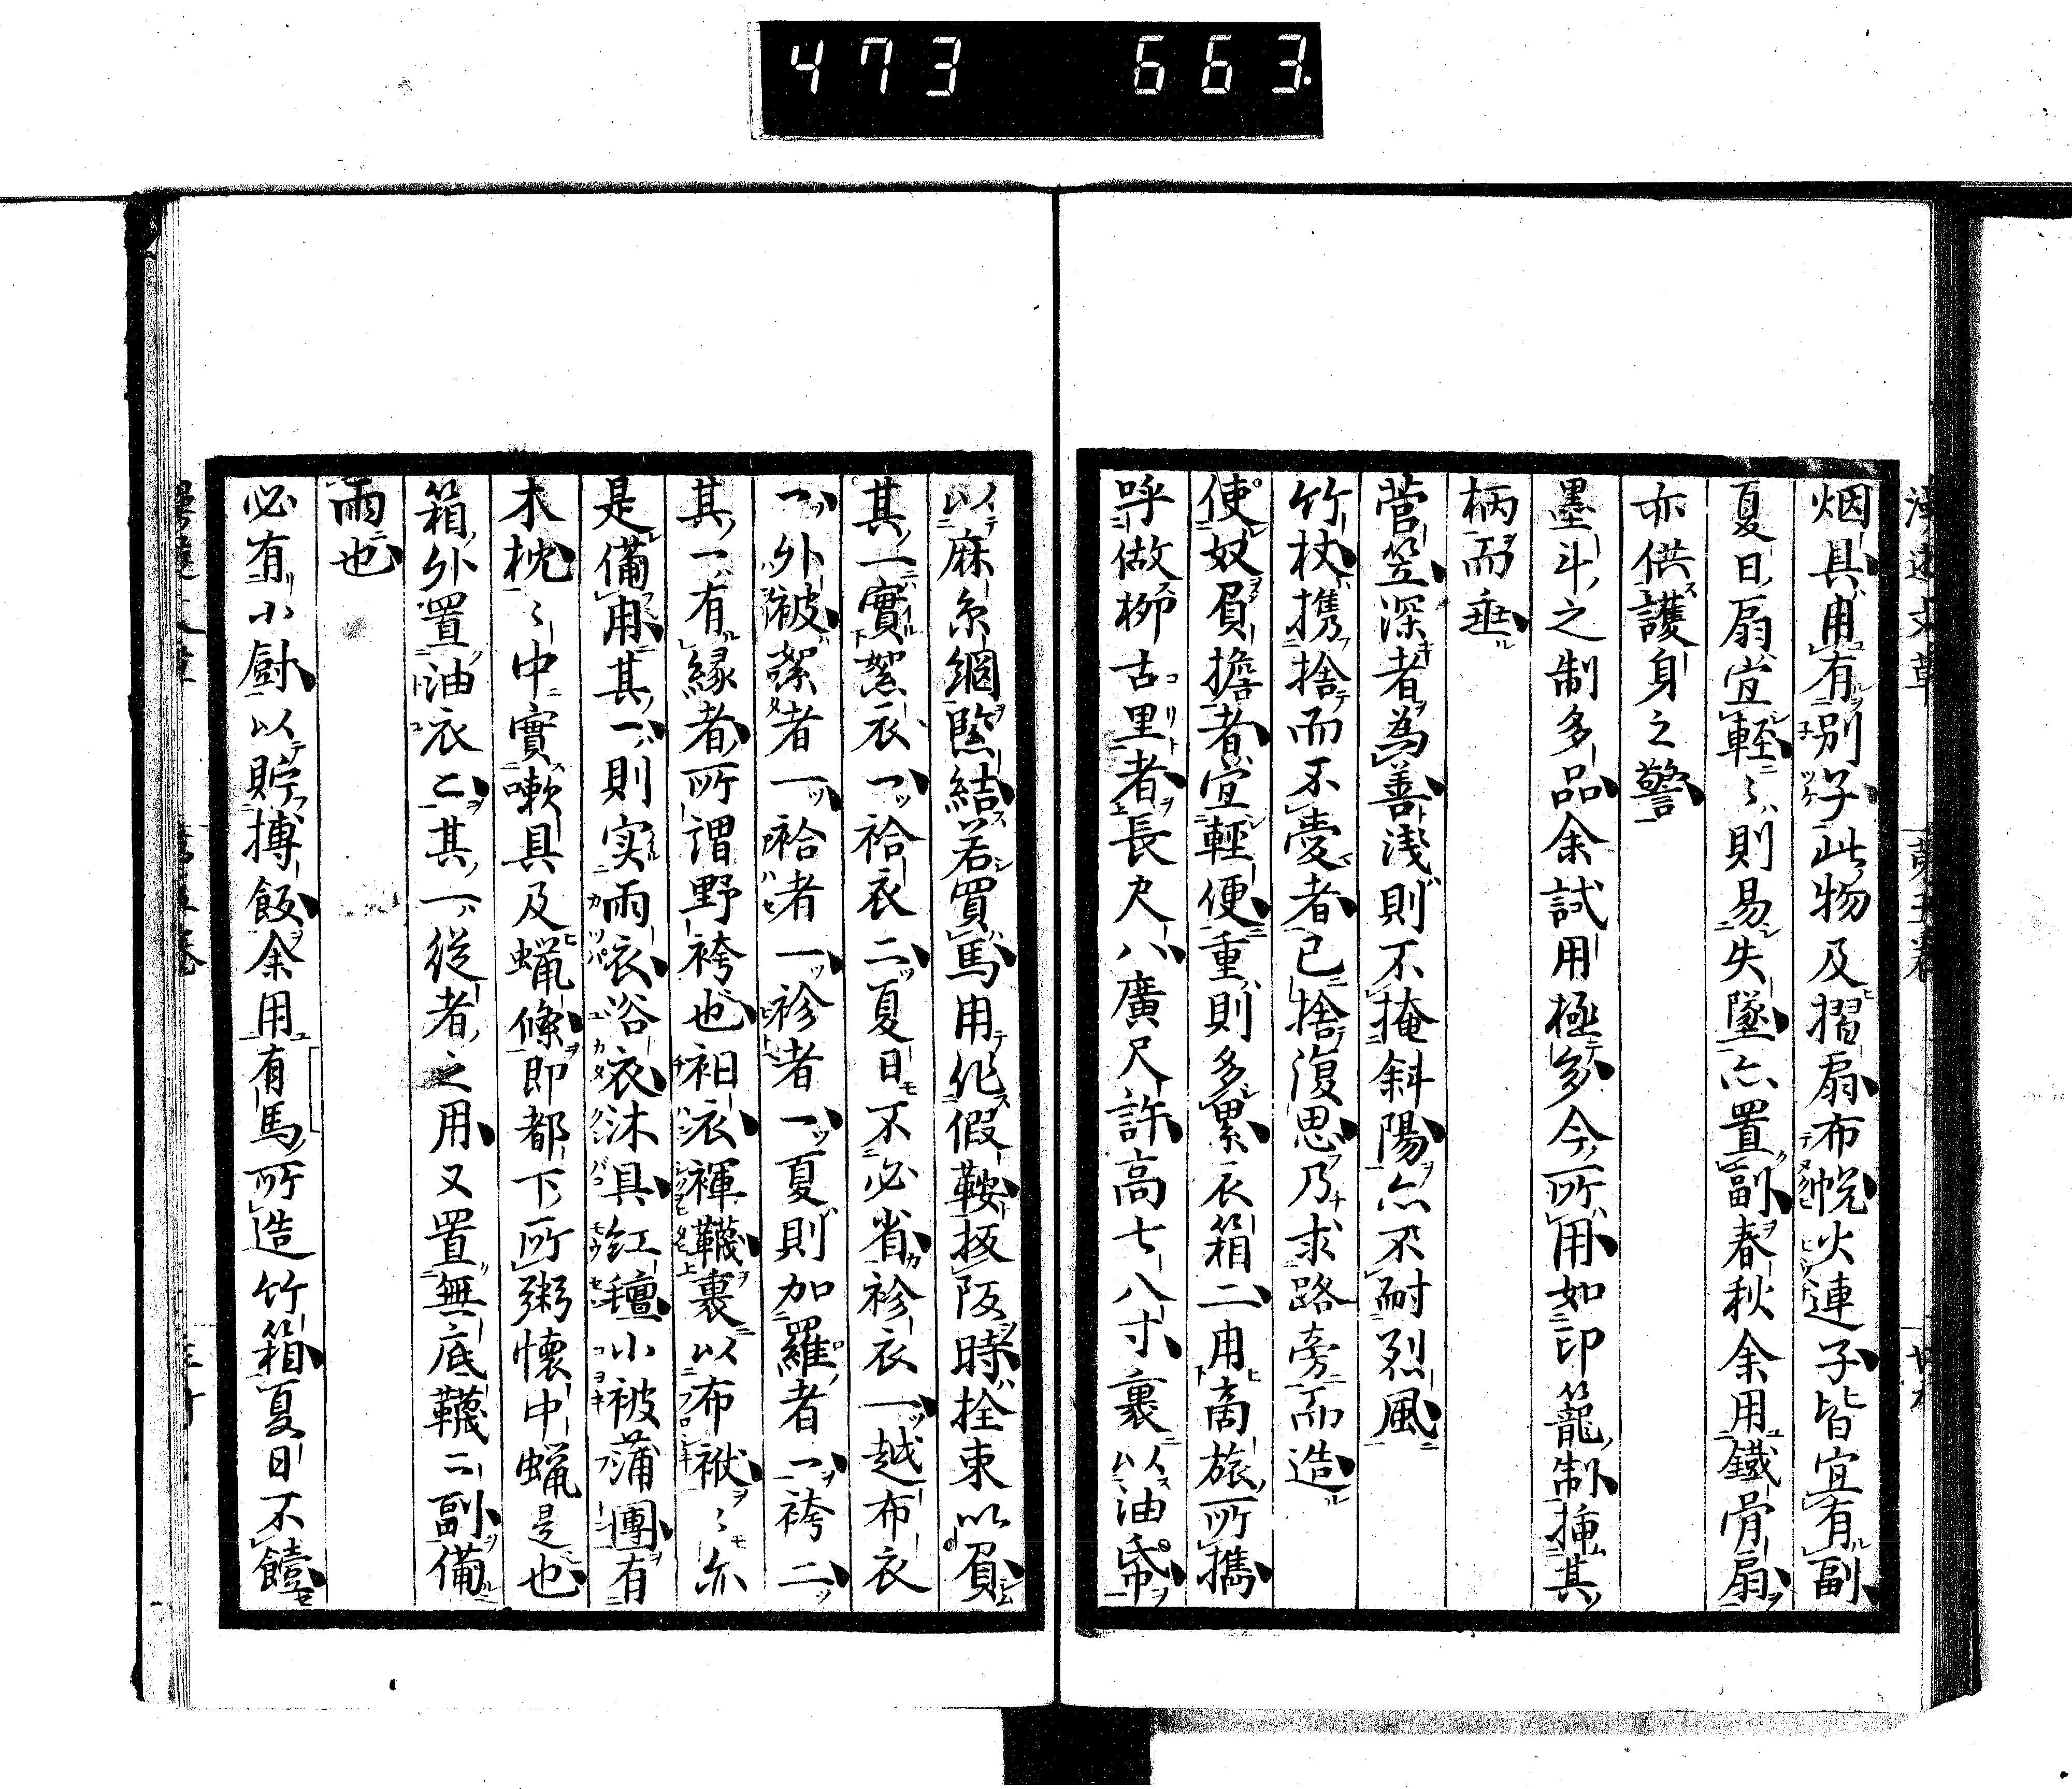 473 663.
烟具用有別子此物及摺扇布帨火連子皆宜有副
夏日扇宜輕〻則易失墜亦置副春秋余用鐵骨扇
亦供護身之警
墨斗之制多品余試用極多今所用如印籠制挿其
柄而垂
菅笠深者為善淺則不掩斜陽亦不耐烈風
竹杖携捨而不愛者已捨復思乃求路旁而造
使奴負擔者宜輕便重則多累衣箱二用商旅所擕
呼做栁古里者長尺八廣尺許高七八寸裹以油帋
以麻糸網緊結若買馬用作假鞍扳阪時拴束以負
其一實絮衣一袷衣二夏日不必省袗衣一越布衣
一外被絮者一袷者一袗者一夏則加羅者一袴二
其一有緣者所謂野袴也衵衣褌韈裹以布袱〻亦
是備用其一則実雨衣浴衣沐具紅氈小被蒲團有
木枕〻中實嗽具及蠟條即都下所粥懷中蠟是也
箱外置油衣二其一從者之用又置無底韈二副備
雨也
必有小厨以貯摶飯余用有馬所造竹箱夏日不饐